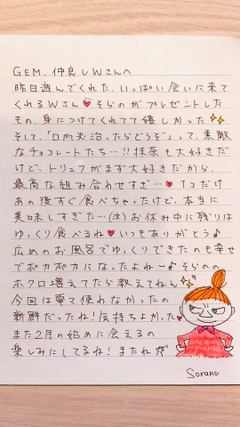 GEM. 仲良しWさんへ
昨日遊んでくれた、いっぱい会いに来て
くれるWさん♥そらのがプレゼントした
もの、身につけてくれてて嬉しかった✨
そして、「口内炎治ったらどうぞ」って、素敵
なチョコレートたち…!!抹茶も大好きだ
けど、トリュフがまず大好きだから、
最高な組み合わせすぎ…♥1コだけ
あの後すぐ食べちゃったけど、本当に
美味しすぎた…(泣)お休み中に残りは
ゆっくり食べるね♥いつもありがとう♪
広めのお風呂でゆっくりできたのも幸せ
でポカポカになったよね〜♪そらのの
ホクロ増えてたら教えてねん✨
今回は電マ使わなかったの
新鮮だったね!気持ちよかった♥
また2月の始めに会えるの
楽しみにしてるね!またねﾝ
Sorano